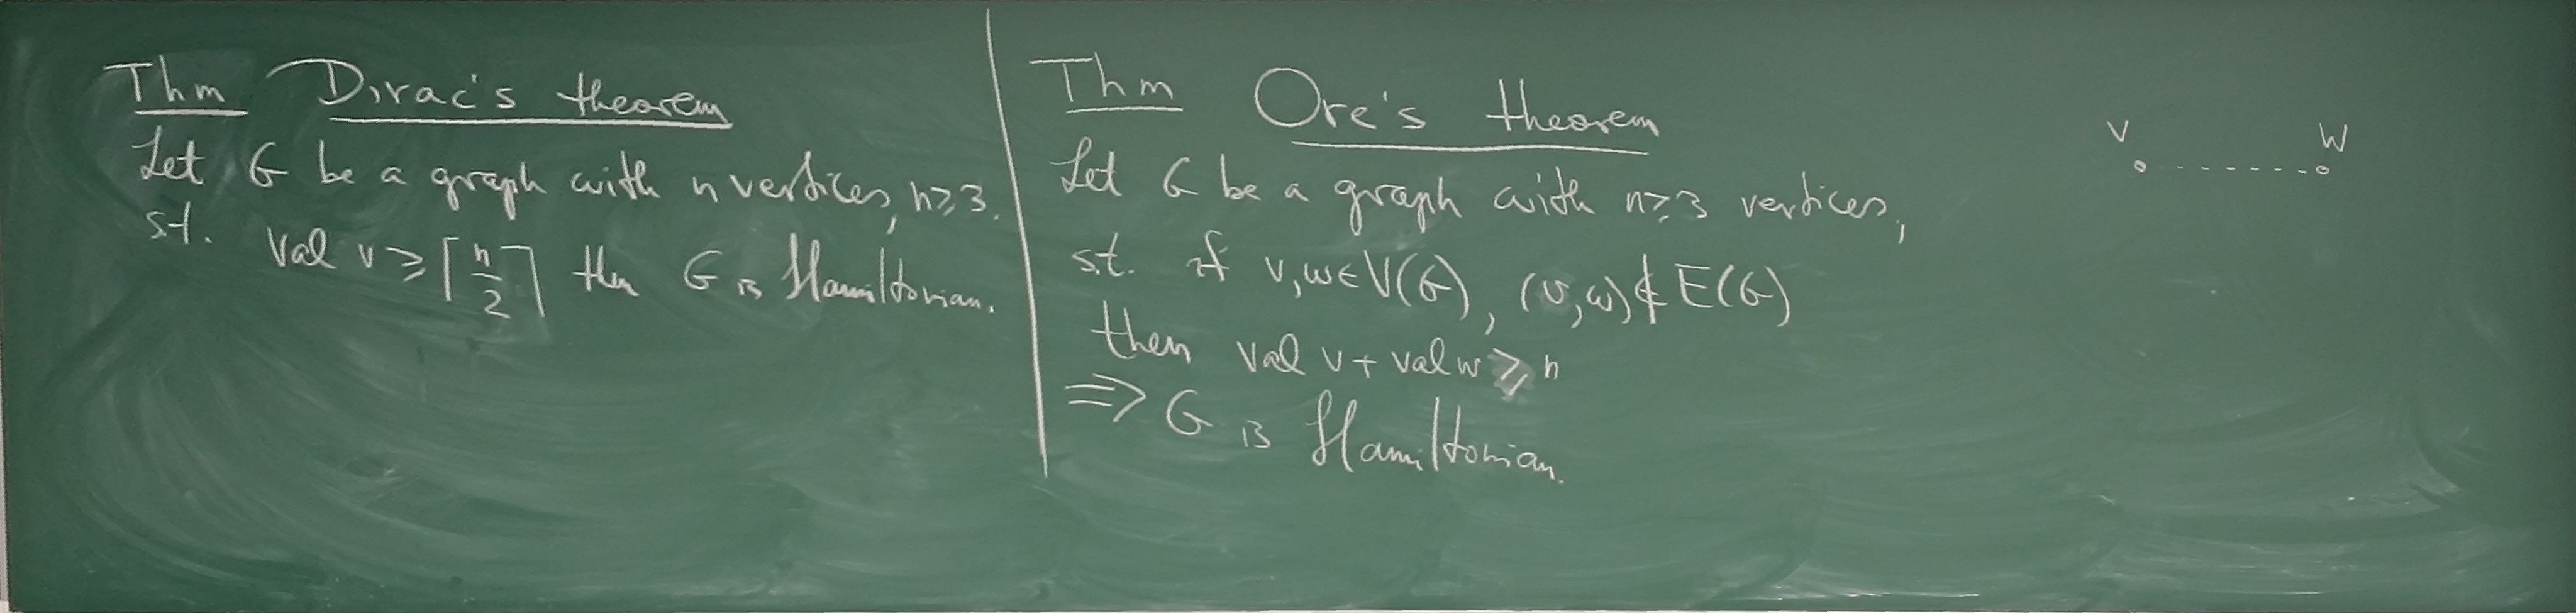 Thm Dirac's theorem
Let G be a graph with n vertices, n≥3.
s.t. val v ≥ ⌈n/2⌉ then G is Hamiltonian.
Thm Ore's theorem
Let G be a graph with n≥3 vertices,
s.t. if v,w∈V(G), (v,w)∉E(G)
then val v + val w ≥ n
⇒ G is Hamiltonian.
v w